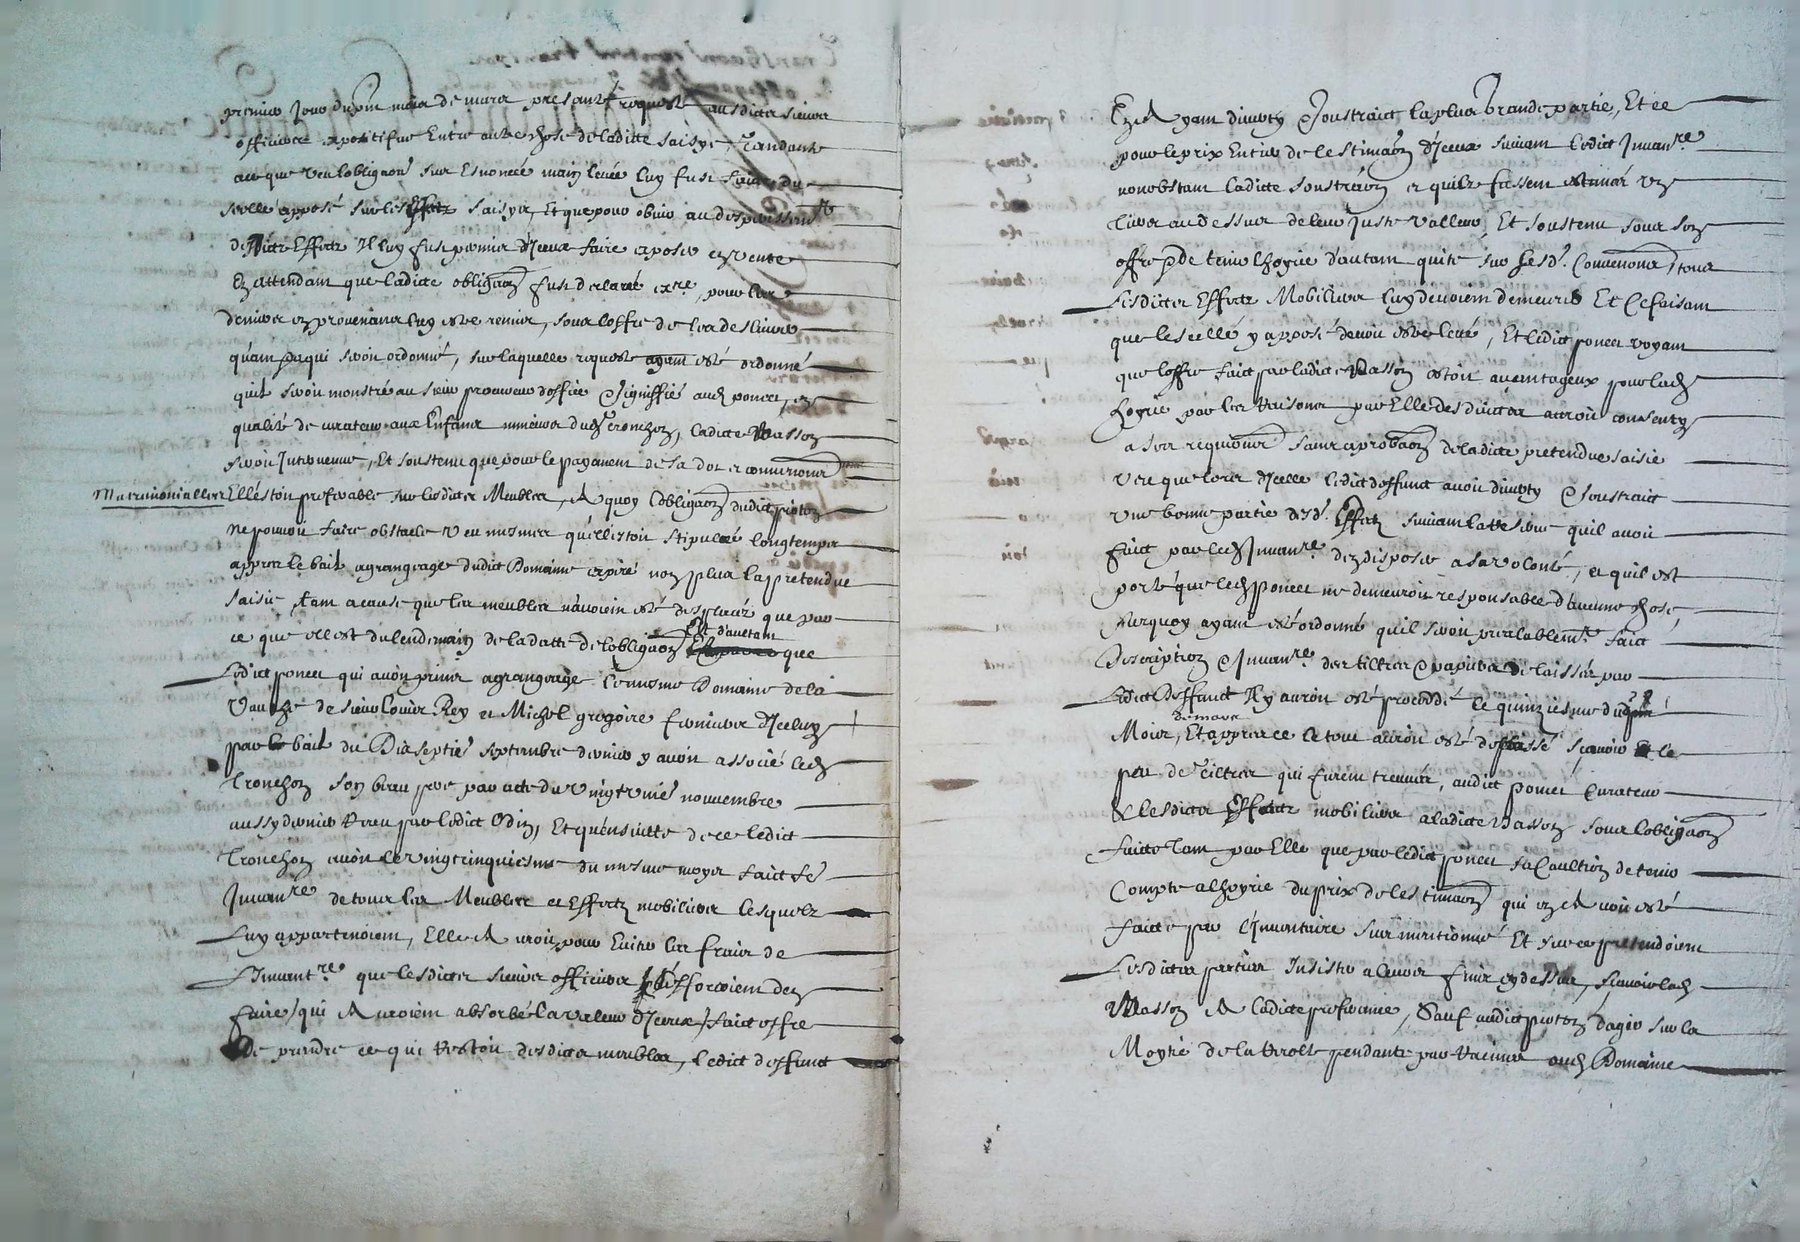 premier jour du pnt mois de mars presanté requeste ausdicts sieurs
officiers expositifue entre autre chose de ladicte saisye, tandante
ace que veu lobligaon sur enoncée main levée luy fust faite du
seellé apposé sur les effectz saisys, Et que pour obvier au desperissemt
desdicts Effectz Il luy fust permis d'Iceux faire exposer en vente
En attendant que ladicte obligaon fust declarée exre, pour les
deniers en provenans luy estre remis, sous l'offre de les deslivrer
qu'ant par qui seroit ordonné, sur laquelle requeste ayant esté ordonné
quil seroit monstré au sieur procureur d'office & signiffié aud poncet, en
qualité de curateur aux Enfans mineurs dud Tronchon, ladicte Masson
seroit Intervenue, Et soustenu que pour le payement de sa dot et conventions
Matrimonialles Elle estoit preferable sur lesdicts Meubles, A quoy l'obligaon dudict pioton
Ne pouvoit faire obstacle veu mesmes qu'elle estoit stipulée longtemps
appres le bail agrangeage dudict Domaine expiré non plus la pretendue
saisie, tant a cause que les meubles n'avoient esté desplacéz que par
ce que elle est du lendemain de la datte de l'obligaon
Et d'autant
que
Ledict poncet qui avoit prins agrangeage le mesme Domaine de la
Vauche de sieur Louis Rey et Michel gregoire fermiers d'Iceluy
par le bail du Dixseptie septembre dernier y avoit associé led
Tronchon son beau pere par acte du vingtvnie nouvembre
aussy dernier Receu par ledict Odin, Et qu'ensuitte de ce ledict
Tronchon avoit le vingtcinquiesme du mesme moys faict fe
Invanre de tous les Meubles et Effectz mobiliers lesquelz
Luy appartenoient, Elle Auroit pour Eviter les fraix de
L'Invantre que lesdicts sieurs officiers s'efforcoient den
faire (qui Auroient absorbé la valeur d'Iceux) faict offre
De prendre ce qui Restoit desdicts meubles, ledict deffunct
En Ayant diverty & soustraict la plus grande partie, Et ce
pour le prix Entier de lestimaon d'Iceux suivant ledict Invanre
nonobstant ladicte soustraon et quilz fussent estimés un
tiers au dessus de leur Juste valleur, Et soustenu sous son
offre & de tenir lhoyrie d'autant quite sur sesd. Conventions, tous
Lesdicts Effectz Mobiliers luy devoient demeurer Et Ce faisant
que le seellé y apposé devoit estre levé, Et ledict poncet voyant
que l'offre faict par ladicte Masson estoit avantageux pour lad
hoyrie par les Raisons par Elle desduictes auroit consenty
a ses requisitions sans approbaon de ladicte pretendue saisie
veu que lors d'Icelle ledict deffunct avoit diverty & soustraict
une bonne partie desd. Effectz suivant la reserve quil avoit
faict par led Invanre den disposer a sa volonté, et quil est
porté que led poncet ne demeuroit responsable d'aucune chose,
Surquoy ayant esté ordonné quil seroit prealablemt faict
Description & Invanre des tiltres & papiers delaissés par
Ledict Deffunct Il y auroit esté procedé le quinziesme dudpnt
de mars
Mois, Et appres ce le tout auroit esté delaissé, sçavoir le
peu de tiltres qui furent treuvés, audict poncet Curateur
& lesdicts Effectz mobiliers a ladicte Masson sous l'obligaon
faicte Tant par Elle que par ledict poncet sa Caution de tenir
Compte a lhoyrie du prix de lestimaon qui en Avoit esté
faicte par l'Inventaire susmentionné Et sur ce pretendoient
Lesdictes parties Insister a leurs fins cydessus, sçavoir lad
Masson A ladicte preferance, Sauf audict pioton d'agir sur la
Moytié de la Recolte pendante par Racines aud Domaine